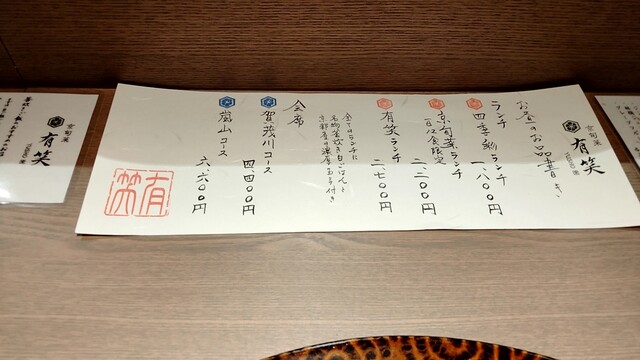 京旬菜
有笑
お昼のお品書き
ランチ
四季彩ランチ 一、八〇〇円
京旬菜ランチ 二、二〇〇円
一日12食限定
有笑ランチ 二、七〇〇円
全てのランチに
名物釜炊き白ごはんと
京都産の濃厚玉子付き
会席
賀茂川コース 四、四〇〇円
嵐山コース 六、六〇〇円
有笑
京旬菜
有笑